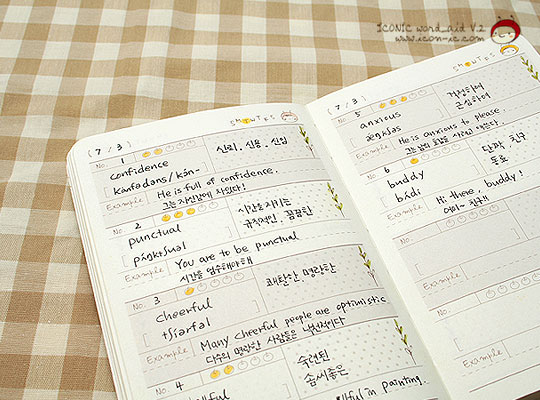 ICONIC word_aid V.2
www.icon-ic.com
(7/3)
SMTWTFS
No. 1
confidence
신뢰, 신용, 신임
[kánfədəns/kɔ́n-]
Example
He is full of confidence.
그는 자신감에 차있다!
No. 2
punctual
시간을 지키는
규칙적인 꼼꼼한
[pʌ́ŋktʃuəl]
Example
You are to be punctual
시간을 엄수해야해
No. 3
cheerful
쾌활한, 명랑한
[tʃíərfəl]
Example
Many cheerful people are optimistic
다수의 명랑한 사람들은 낙천적이다
No. 4
숙련된
솜씨좋은
in painting.
(7/3)
SMTWTFS
No. 5
anxious
걱정하여
근심하여
[ǽŋkʃəs]
Example
He is anxious to please.
No. 6
buddy
단짝, 친구
동료
[bʌ́di]
Example
Hi there, buddy!
어이~ 친구!!
No.
Example
No.
Example